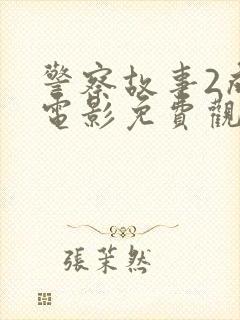 警察故事2
電影免費觀
張茉然